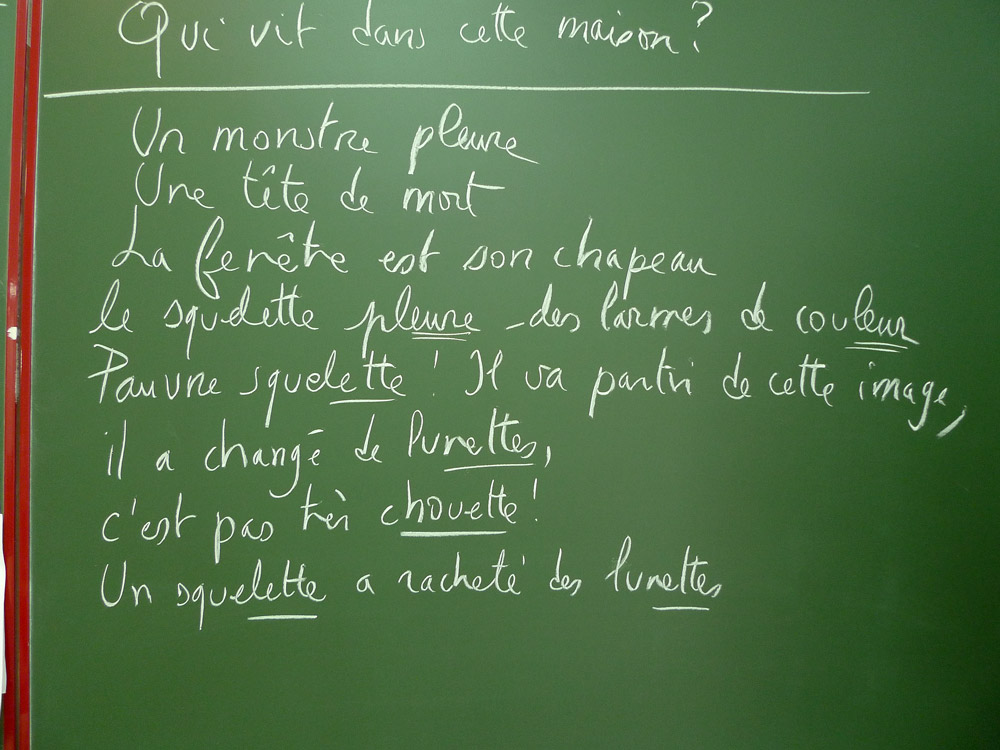 Qui vit dans cette maison?
Un monstre pleure
Une tête de mort
La fenêtre est son chapeau
le squelette pleure des larmes de couleur
Pauvre squelette ! Il va partir de cette image,
il a changé de lunettes,
c'est pas très chouette !
Un squelette a racheté des lunettes